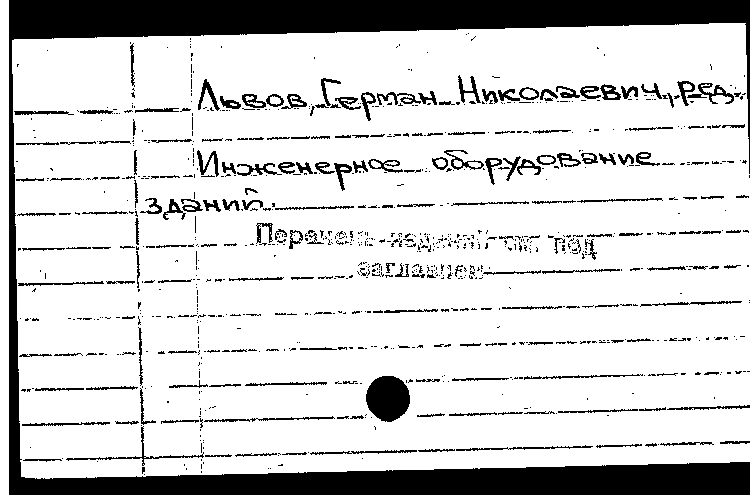 Львов, Герман Николаевич, ред.
Инженерное оборудование
зданий.
Перечень изданий см. под
заглавием